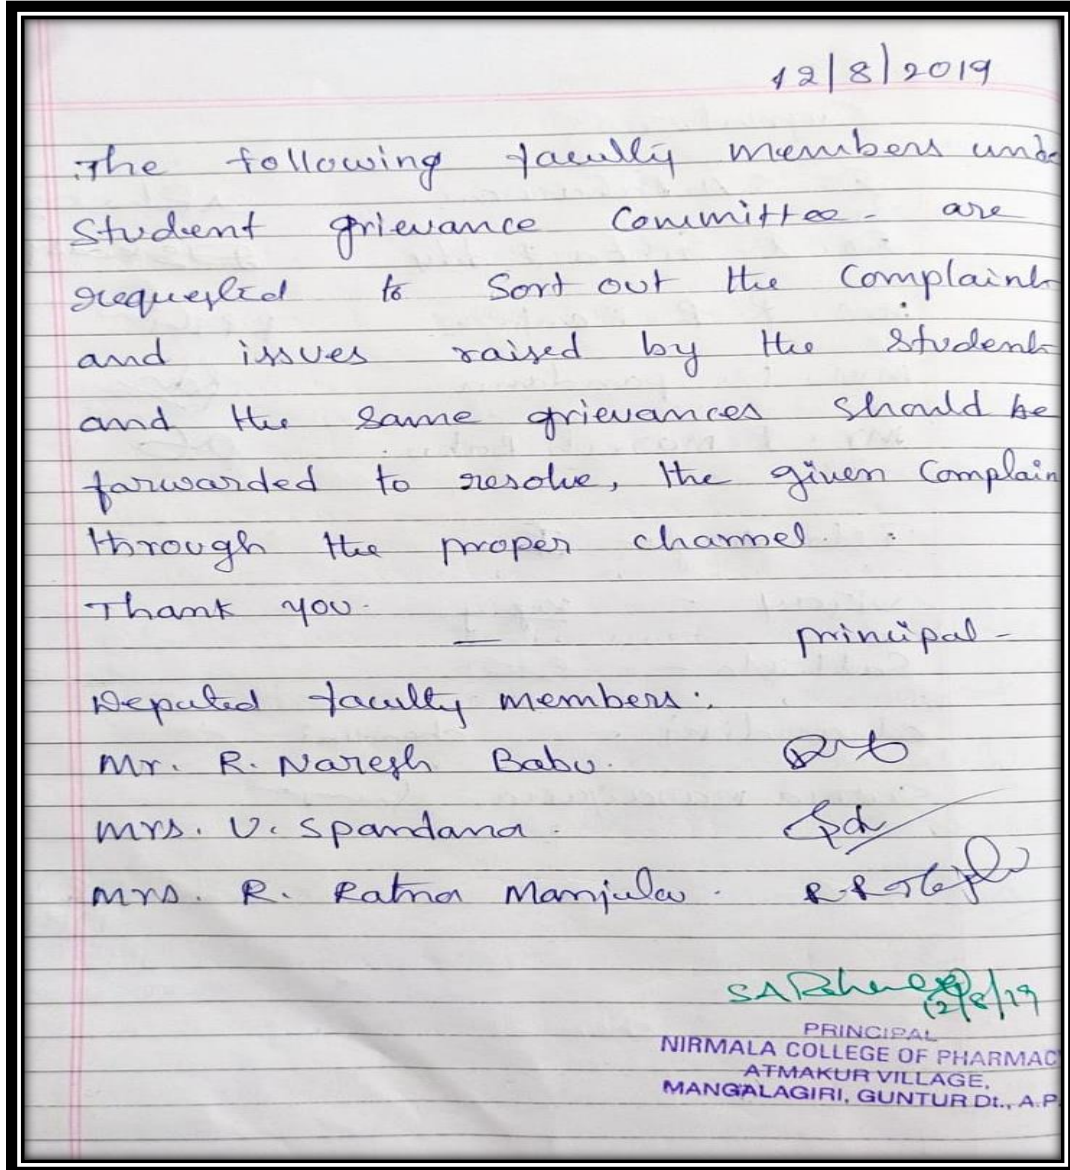 12/8/2019
The following faculty members unde
Student grievance Committee - are
requested to Sort out the Complaints
and issues raised by the Students
and the same grievances should be
forwarded to resolve, the given Complain
through the proper channel.
Thank you.
principal -
Deputed faculty members:
Mr. R. Naresh Babu.
Mrs. V. Spandana.
Mrs. R. Ratna Manjula.
12/8/19
PRINCIPAL
NIRMALA COLLEGE OF PHARMAC
ATMAKUR VILLAGE,
MANGALAGIRI, GUNTUR Dt., A.P.